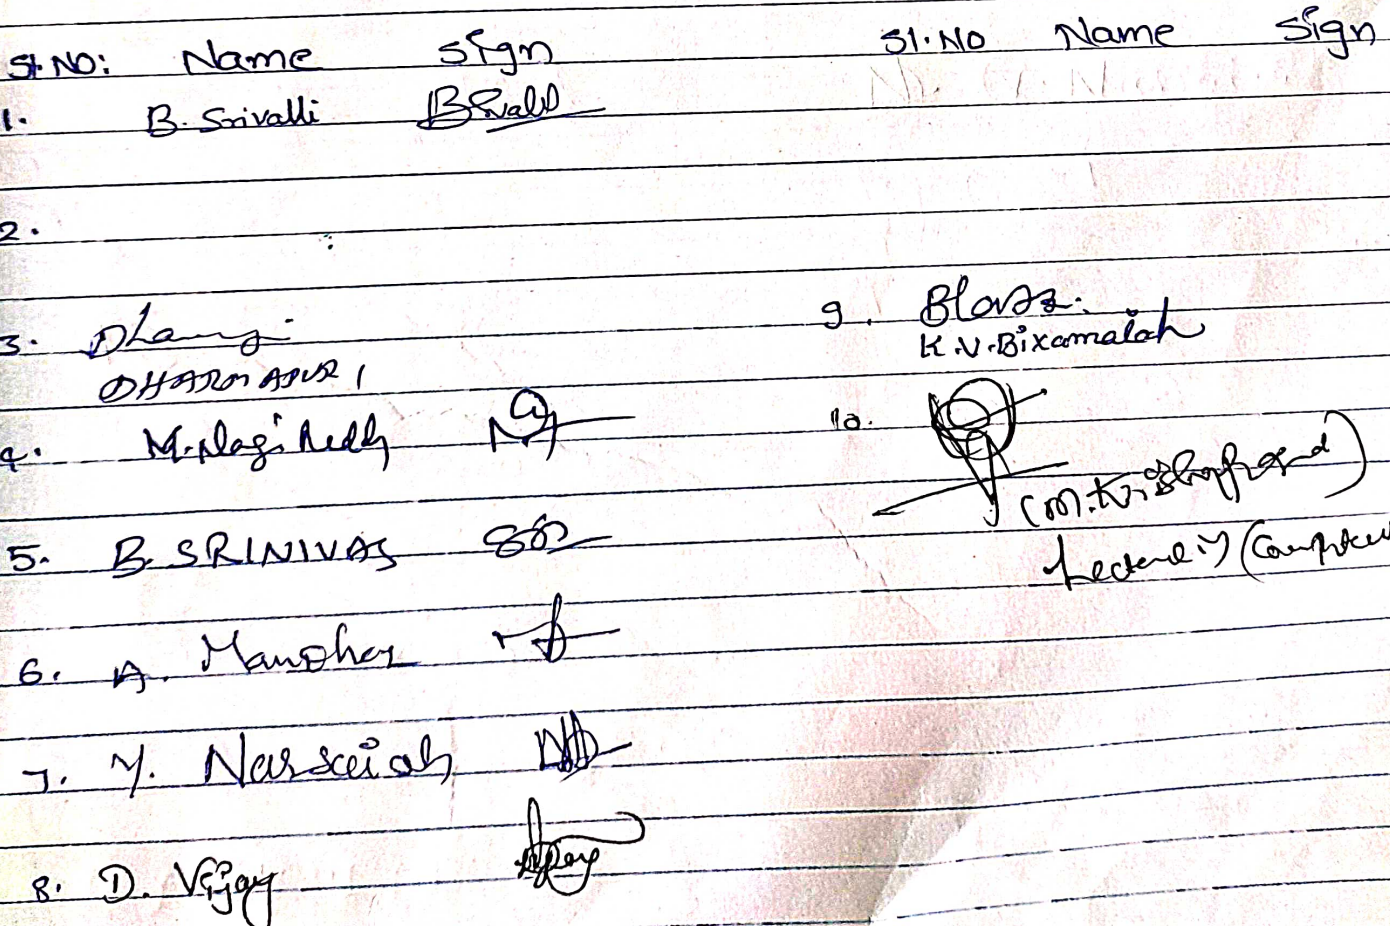 Sl. NO: Name Sign
1. B. Srivalli
2.
3.
DHARMAPURI
4. M. Nagi Reddy
5. B. SRINIVAS
6. A. Manohar
7. Y. Narsaiah
8. D. Vijay
Sl. NO Name Sign
9.
K.V. Bixamaiah
10.
(M. Krishnaprasad)
Lecturer in (Computer